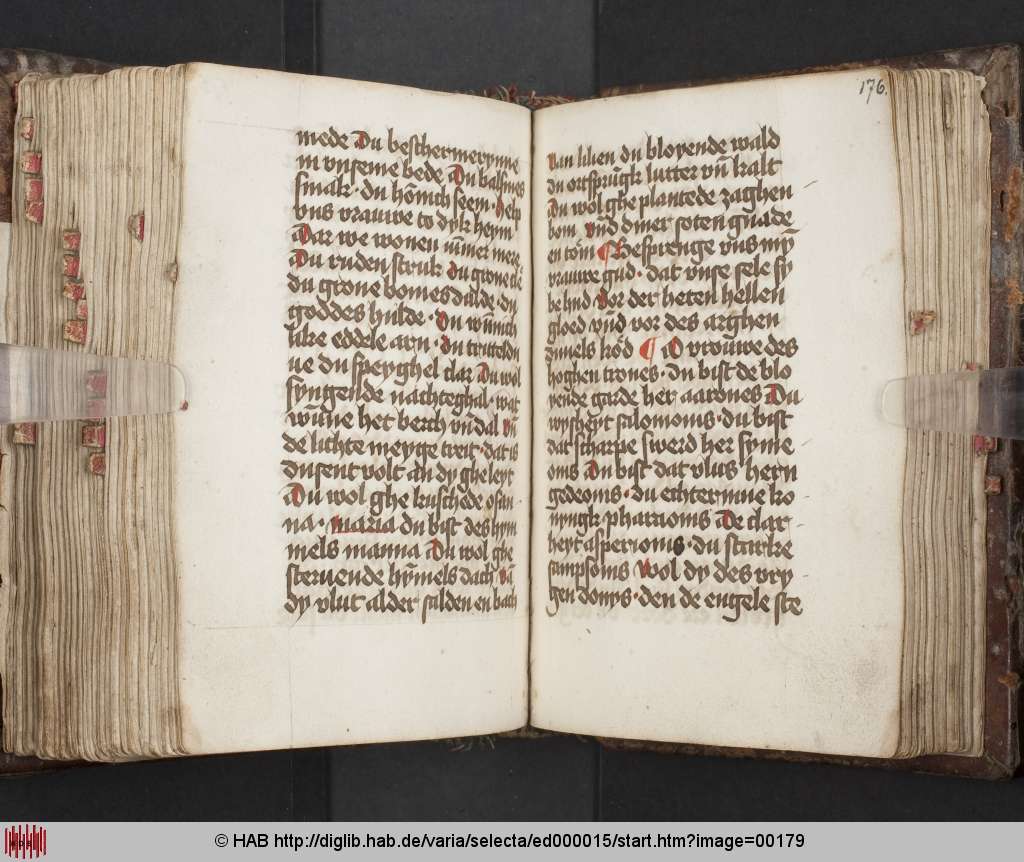 mede Du beschermerynne
in vnseme bede Du balsmes
smak · du hōnich seem · help
vns vrauwe to dyk heym
Dar we wonen nūmer mere ·
Du ruden struk du grone cle
du grone bomes dalde · du
goddes hulde · Du wūnich
like eddele arn · du turteldu
ue du speyghel clar Du wol
syngende nachteghal · wat
wūne het berch vn̄ dal vn̄
de lichte meyge treit · dat is
dusent volt an dy gheleyt
Du wol ghe kuschede osan
na · maria du bist des hym
mels manna Du wol ghe
sternende hȳmels dach vā
dy vlut alder salden en bach
176.
van lilien du bloyende wald
du ortsprūgk lutter vn̄ kalt
Du wol ghe plantede zaghen
bom vnd diner soten gnade
en tōm ¶ Besprenge vns mȳ
vrauwe gud · dat vnse sele sy
be hud Vor der heten hellen
gloed vn̄d vor des arghen
duuels kōd ¶ O vrouwe des
hoghen trones · du bist de blo
yende garde her aarones Du
wysheyt salomonis · du bist
dat scharpe swerd her syme
ons Du bist dat vlus hern
gedeonis · du echtermne ko
nyngk pharaonis De clar
heyt asperionis · du starke
sampsonis Wol dy des vry
gen donys · den de engele ste
© HAB http://diglib.hab.de/varia/selecta/ed000015/start.htm?image=00179